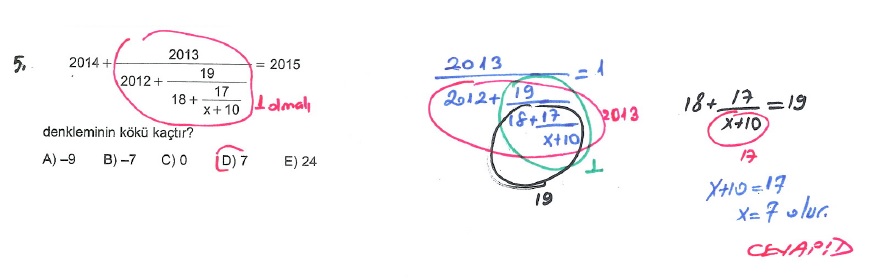 5.
2014 + 2013 / (2012 + 19 / (18 + 17 / (x + 10))) = 2015
1 olmalı
denkleminin kökü kaçtır?
A) –9 B) –7 C) 0 D) 7 E) 24
2013 / (2012 + 19 / (18 + 17 / (x+10))) = 1
2013
1
19
18 + 17 / (x+10) = 19
17
x+10 = 17
x = 7 olur.
CEVAP: D